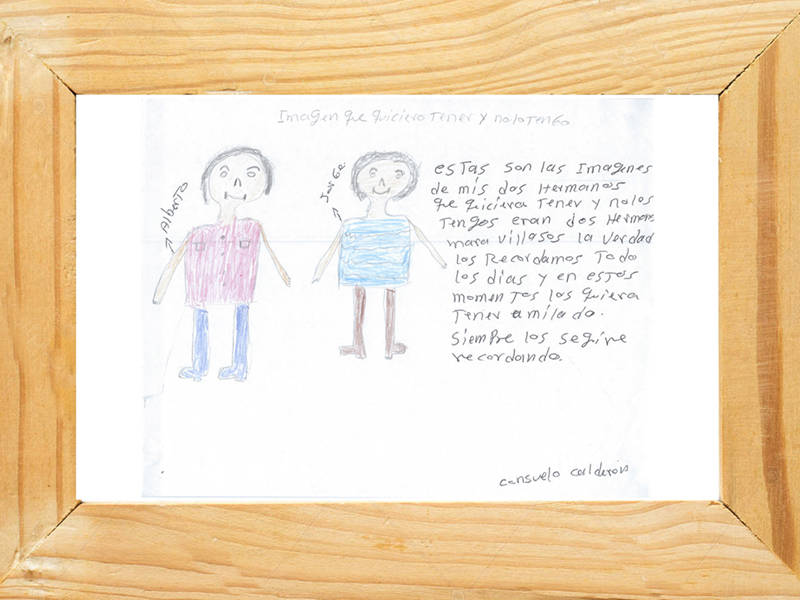 Imagen que quiciera Tener y nolo Tengo
Alberto
Jorge
esTas son las Imagenes
de mis dos Hermanos
que quiciera Tener y nolos
Tengos eran dos Herman
maravillasos la verdad
los Recordamos Todo
los dias y en estos
momenTos los quiera
Tener amilado.
Siempre los segire
recordando.
consuelo calderon